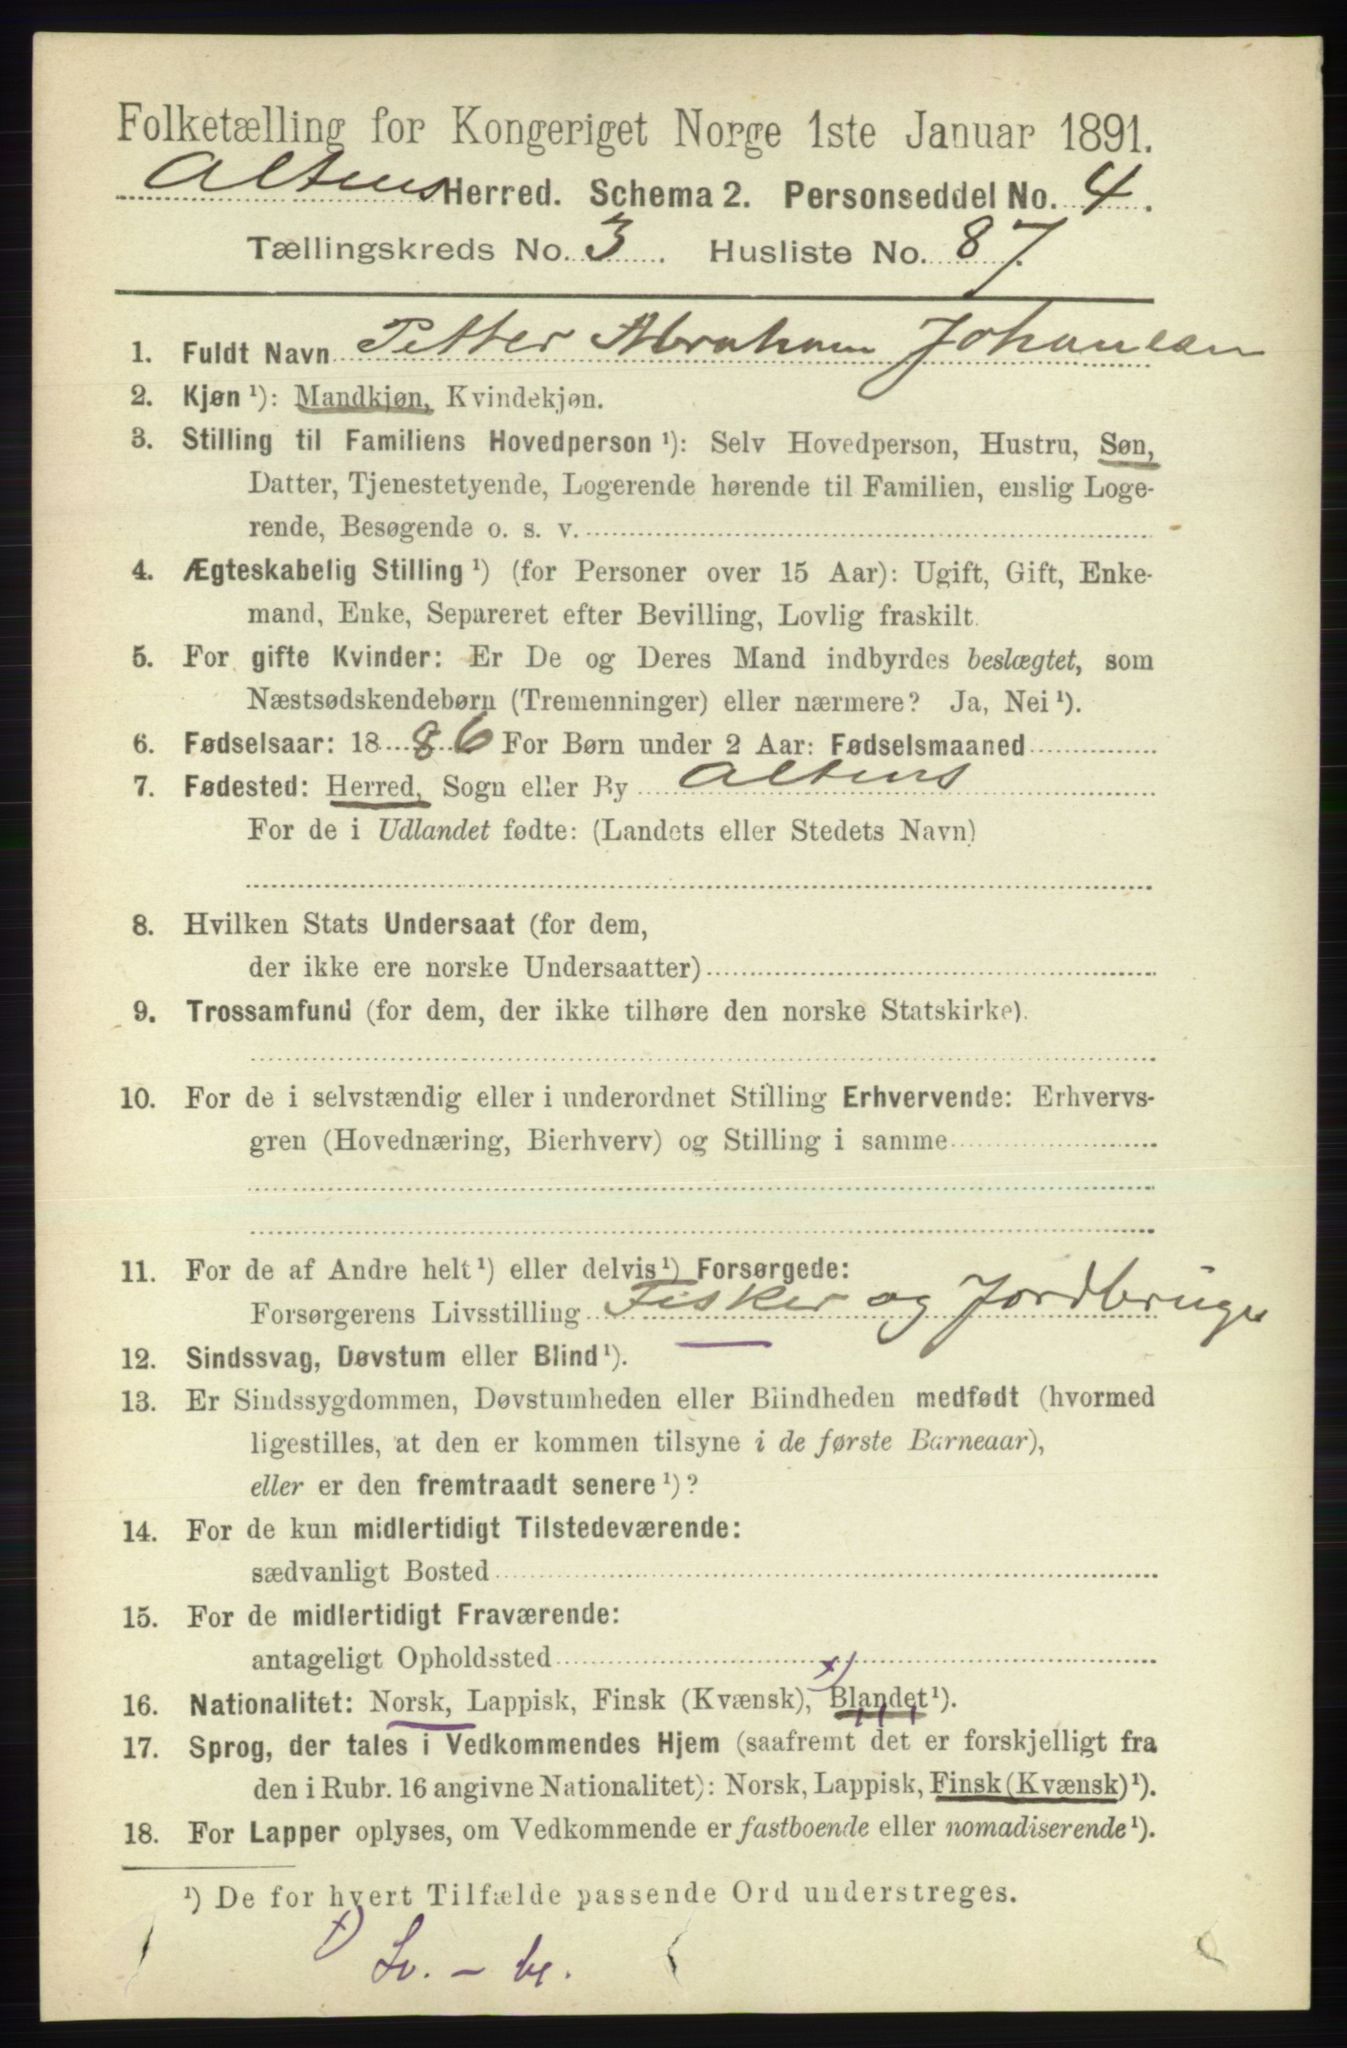 Folketælling for Kongeriget Norge 1ste Januar 1891.
Altens Herred. Schema 2. Personseddel No. 4.
Tællingskreds No. 3. Husliste No. 87.
1. Fuldt Navn Petter Abraham Johansen
2. Kjøn ¹): Mandkjøn, Kvindekjøn.
3. Stilling til Familiens Hovedperson ¹): Selv Hovedperson, Hustru, Søn,
Datter, Tjenestetyende, Logerende hørende til Familien, enslig Loge-
rende, Besøgende o. s. v.
4. Ægteskabelig Stilling ¹) (for Personer over 15 Aar): Ugift, Gift, Enke-
mand, Enke, Separeret efter Bevilling, Lovlig fraskilt.
5. For gifte Kvinder: Er De og Deres Mand indbyrdes beslægtet, som
Næstsødskendebørn (Tremenninger) eller nærmere? Ja, Nei ¹).
6. Fødselsaar: 1886 For Børn under 2 Aar: Fødselsmaaned
7. Fødested: Herred, Sogn eller By Altens
For de i Udlandet fødte: (Landets eller Stedets Navn)
8. Hvilken Stats Undersaat (for dem,
der ikke ere norske Undersaatter)
9. Trossamfund (for dem, der ikke tilhøre den norske Statskirke).
10. For de i selvstændig eller i underordnet Stilling Erhvervende: Erhvervs-
gren (Hovednæring, Bierhverv) og Stilling i samme
11. For de af Andre helt ¹) eller delvis ¹) Forsørgede:
Forsørgerens Livsstilling Fisker og Jordbruger
12. Sindssvag, Døvstum eller Blind ¹).
13. Er Sindssygdommen, Døvstumheden eller Blindheden medfødt (hvormed
ligestilles, at den er kommen tilsyne i de første Barneaar),
eller er den fremtraadt senere ¹)?
14. For de kun midlertidigt Tilstedeværende:
sædvanligt Bosted
15. For de midlertidigt Fraværende:
antageligt Opholdssted
16. Nationalitet: Norsk, Lappisk, Finsk (Kvænsk), x) Blandet ¹).
17. Sprog, der tales i Vedkommendes Hjem (saafremt det er forskjelligt fra
den i Rubr. 16 angivne Nationalitet): Norsk, Lappisk, Finsk (Kvænsk) ¹).
18. For Lapper oplyses, om Vedkommende er fastboende eller nomadiserende ¹).
¹) De for hvert Tilfælde passende Ord understreges.